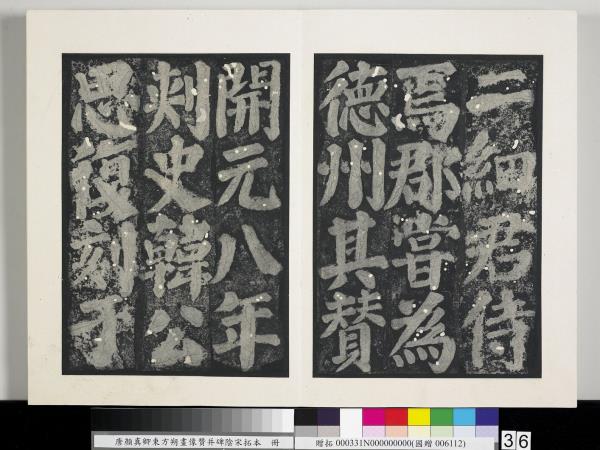 二細君侍
焉郡嘗為
德州其贊
開元八年
刺史韓公
思復刻于
唐顏真卿東方朔畫像贊并碑陰宋拓本 冊
贈拓 000331N000000000(國贈 006112)
36